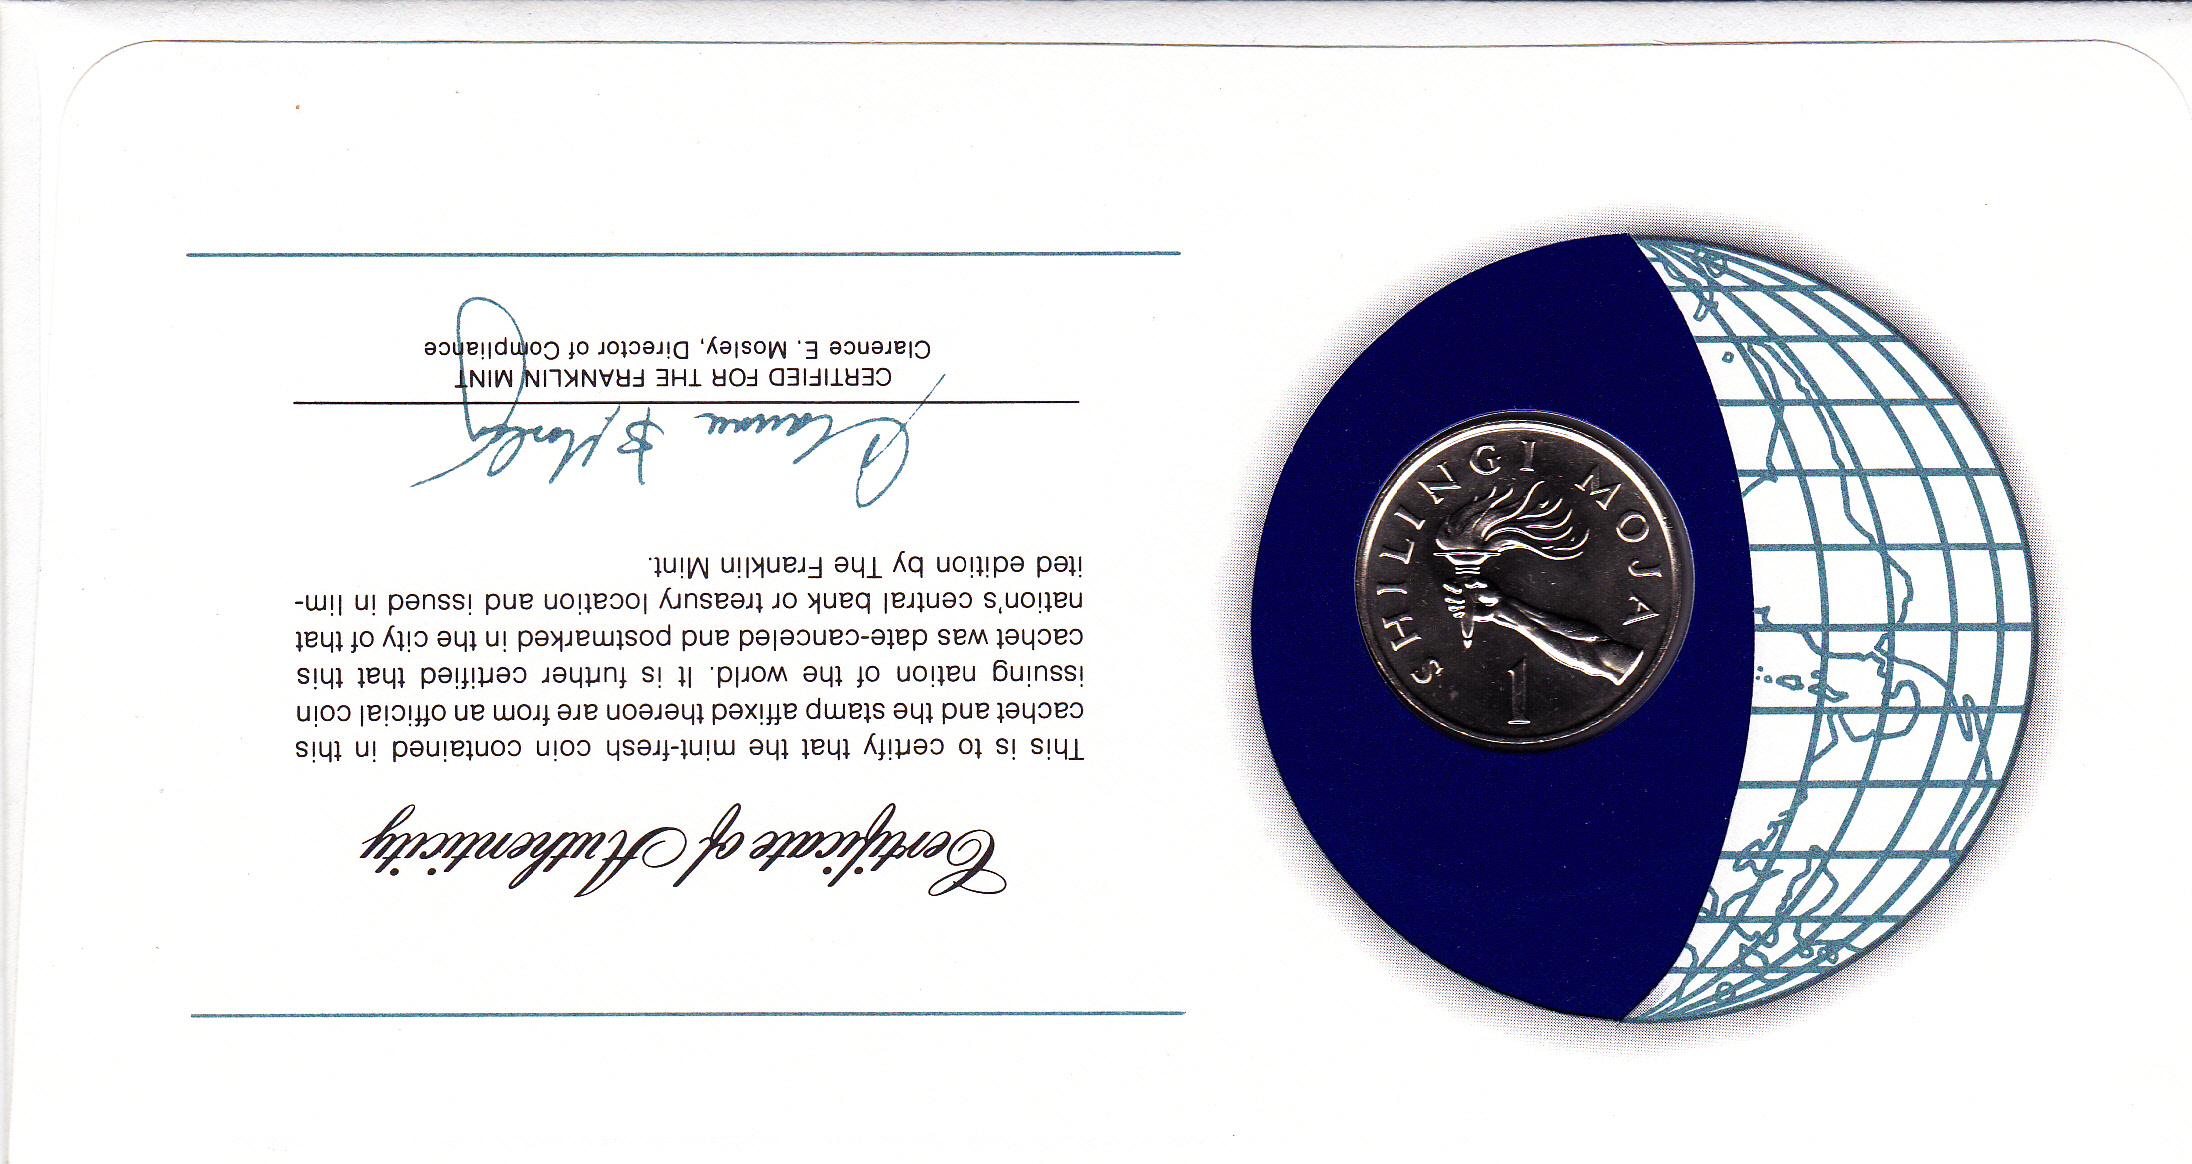 Certificate of Authenticity
This is to certify that the mint-fresh coin contained in this
cachet and the stamp affixed thereon are from an official coin
issuing nation of the world. It is further certified that this
cachet was date-canceled and postmarked in the city of that
nation's central bank or treasury location and issued in lim-
ited edition by The Franklin Mint.
Clarence E Mosley
CERTIFIED FOR THE FRANKLIN MINT
Clarence E. Mosley, Director of Compliance
SHILINGI MOJA
1